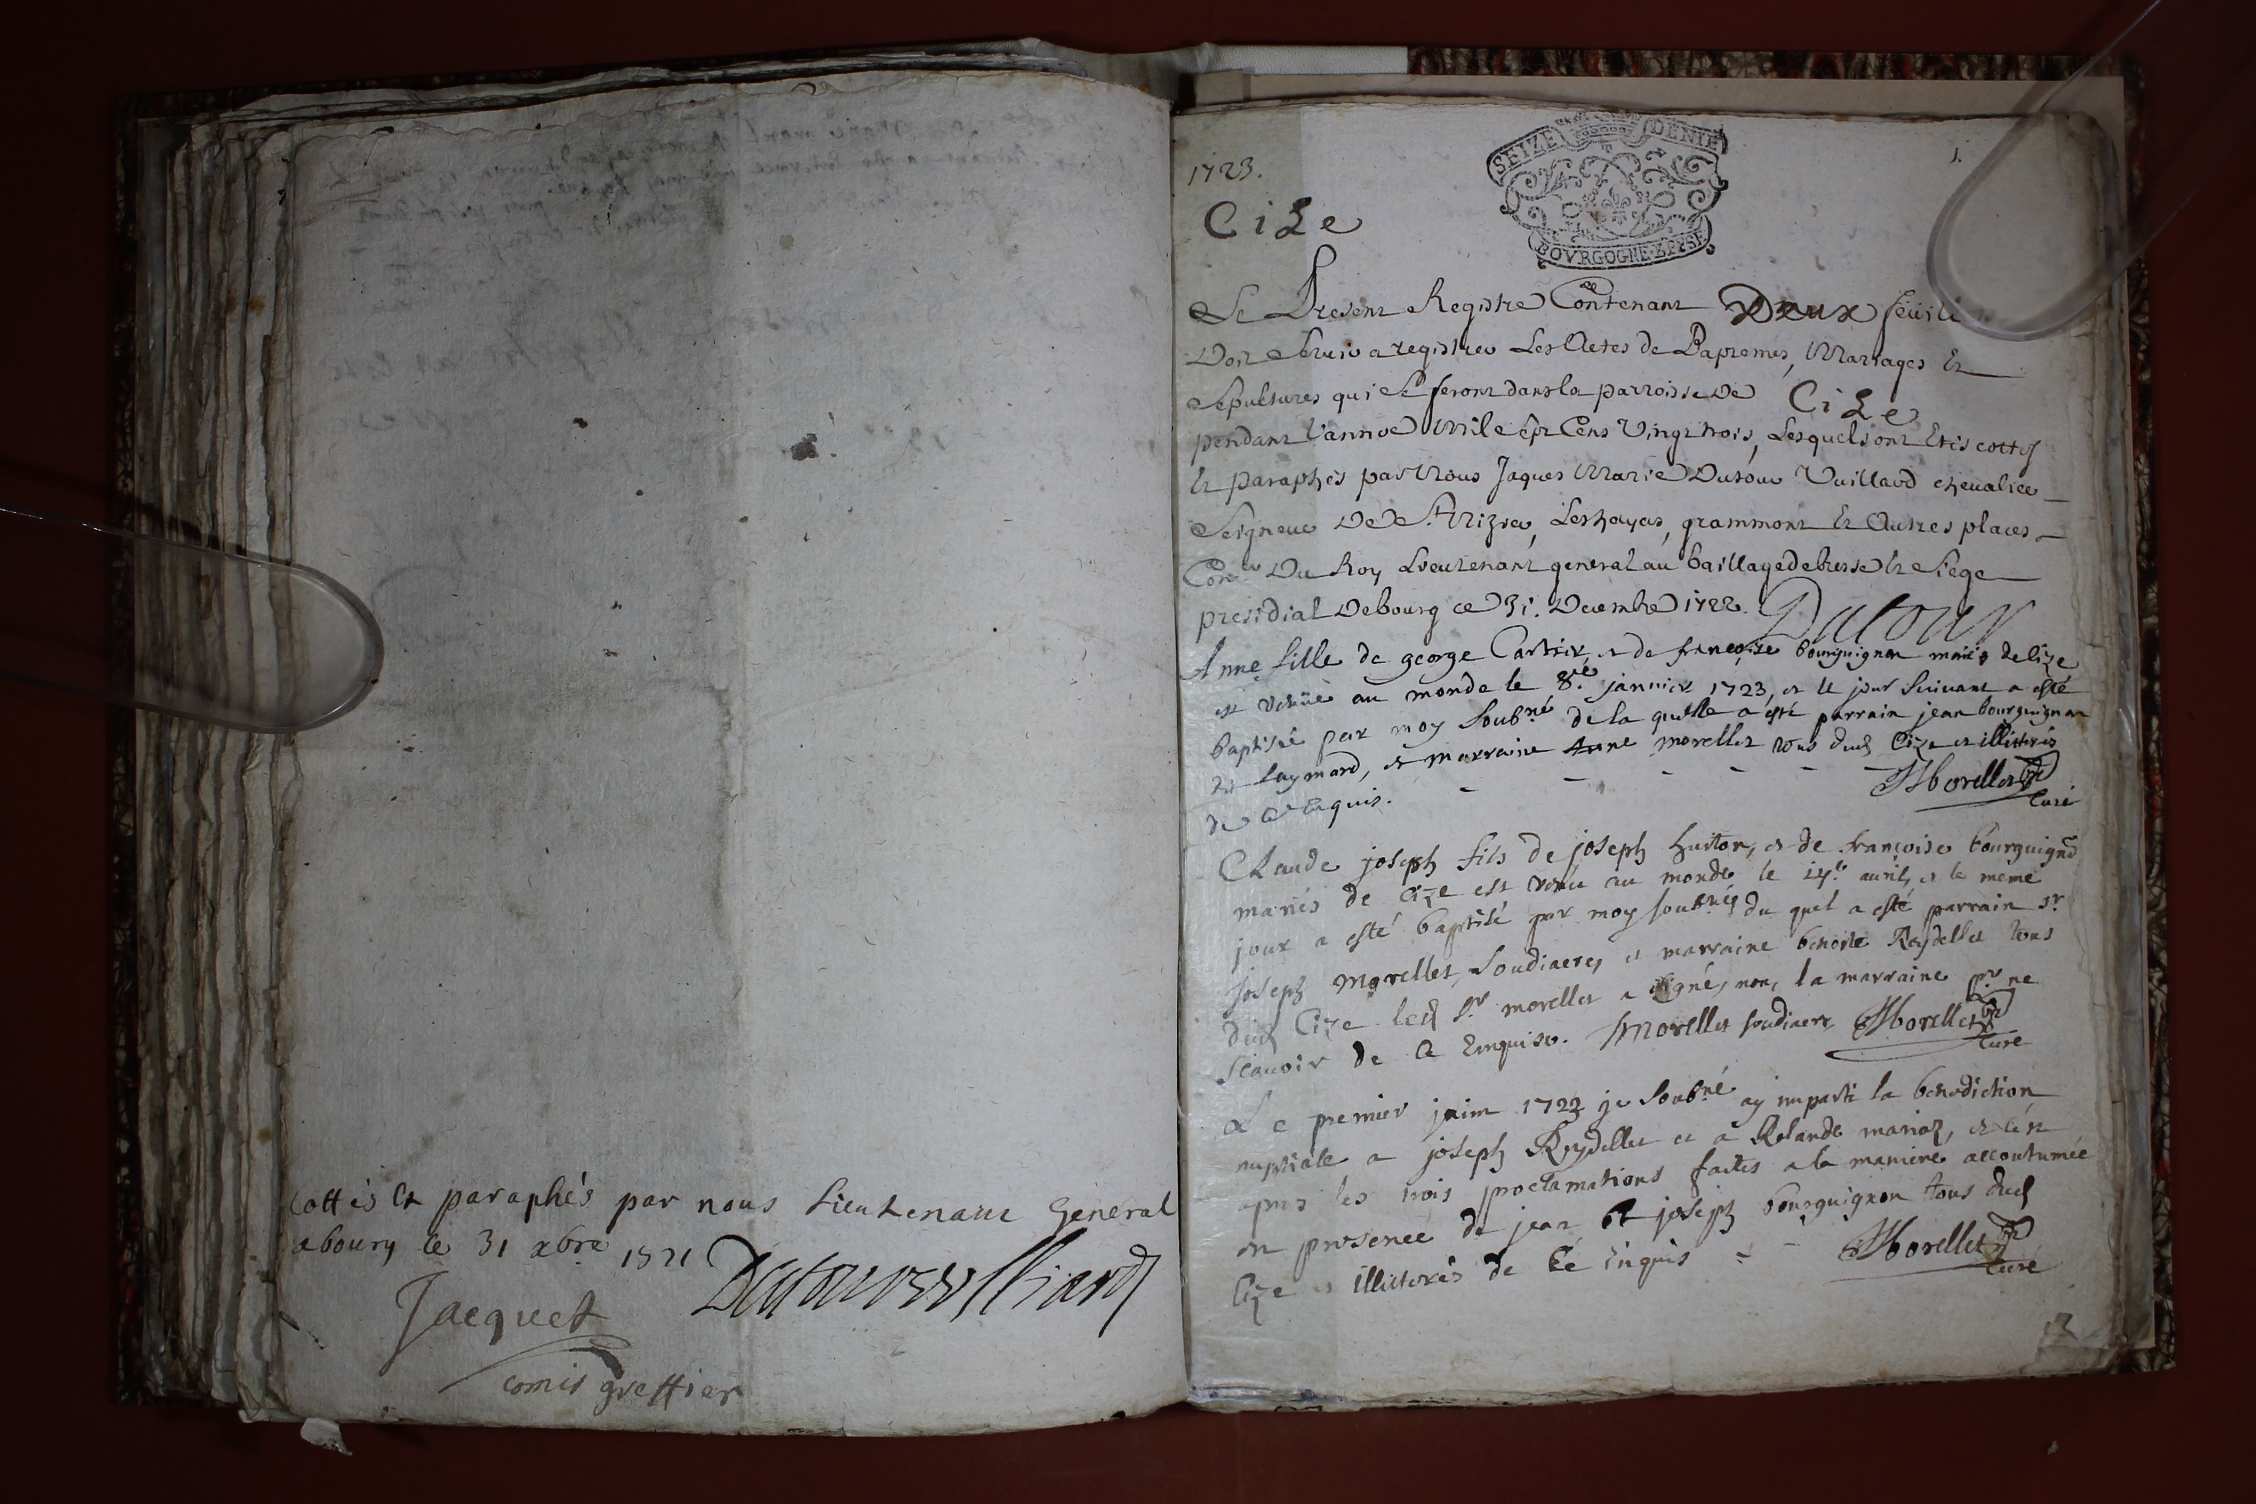 cottés et paraphés par nous Lieutenant General
a bourg le 31 xbre 1721
Jacquet
comis greffier
1723.
1.
SEIZE DENIE
BOVRGOGNE·BRESSE
Cize
Le Present Registre Contenant Deux feüill
Doit Servir a registrer Les Actes de Baptemes, Mariages Et
Sepultures qui Se feront dans la parroisse De Cize
pendant l'année Mil Sept Cens Vingt trois, Lesquels ont Etés cottés
Et Paraphés par Nous Jaques Marie Dutour Vuillard chevalier
Seigneur De St. Nizier, Les hayes, grammont Et Autres places
Conser Du Roy Lieutenant general au bailliage de bresse Et Siege
presidial De bourg ce 31. Decembre 1722. Dutour
Anne fille de george Cartier, et de françoise bourguignon mariés de Cize
est venüe au monde le 8e. janvier 1723, et le jour suivant a esté
baptisée par moy soubné de la quelle a esté parrain jean bourguignon
dit Laymard, et marraine Anne morellet tous dud Cize et illitterés
de ce enquis. Morellet ptre
Curé
Claude joseph fils de joseph huiton, et de françoise bourguignon
mariés de Cize est venu au monde le 14e. avril, et le meme
jour a esté baptisé par moy soubné, du quel a esté parrain sr.
joseph Morellet, Soudiacre, et marraine benoite Reydellet tous
dud Cize led Sr morellet a signé, non, la marraine pr. ne
scavoir de ce Enquise. Morellet soudiacre Morellet ptre
Curé
Le premier juin 1723 je soubné ay imparti la benediction
nuptiale a joseph Reydellet et a Rolande mariaz, et c'est
apres les trois proclamations faites a la maniere accoutumée
en presence de jean et joseph bourguignon tous dud
Cize et illitterés de ce Enquis Morellet ptre
Curé